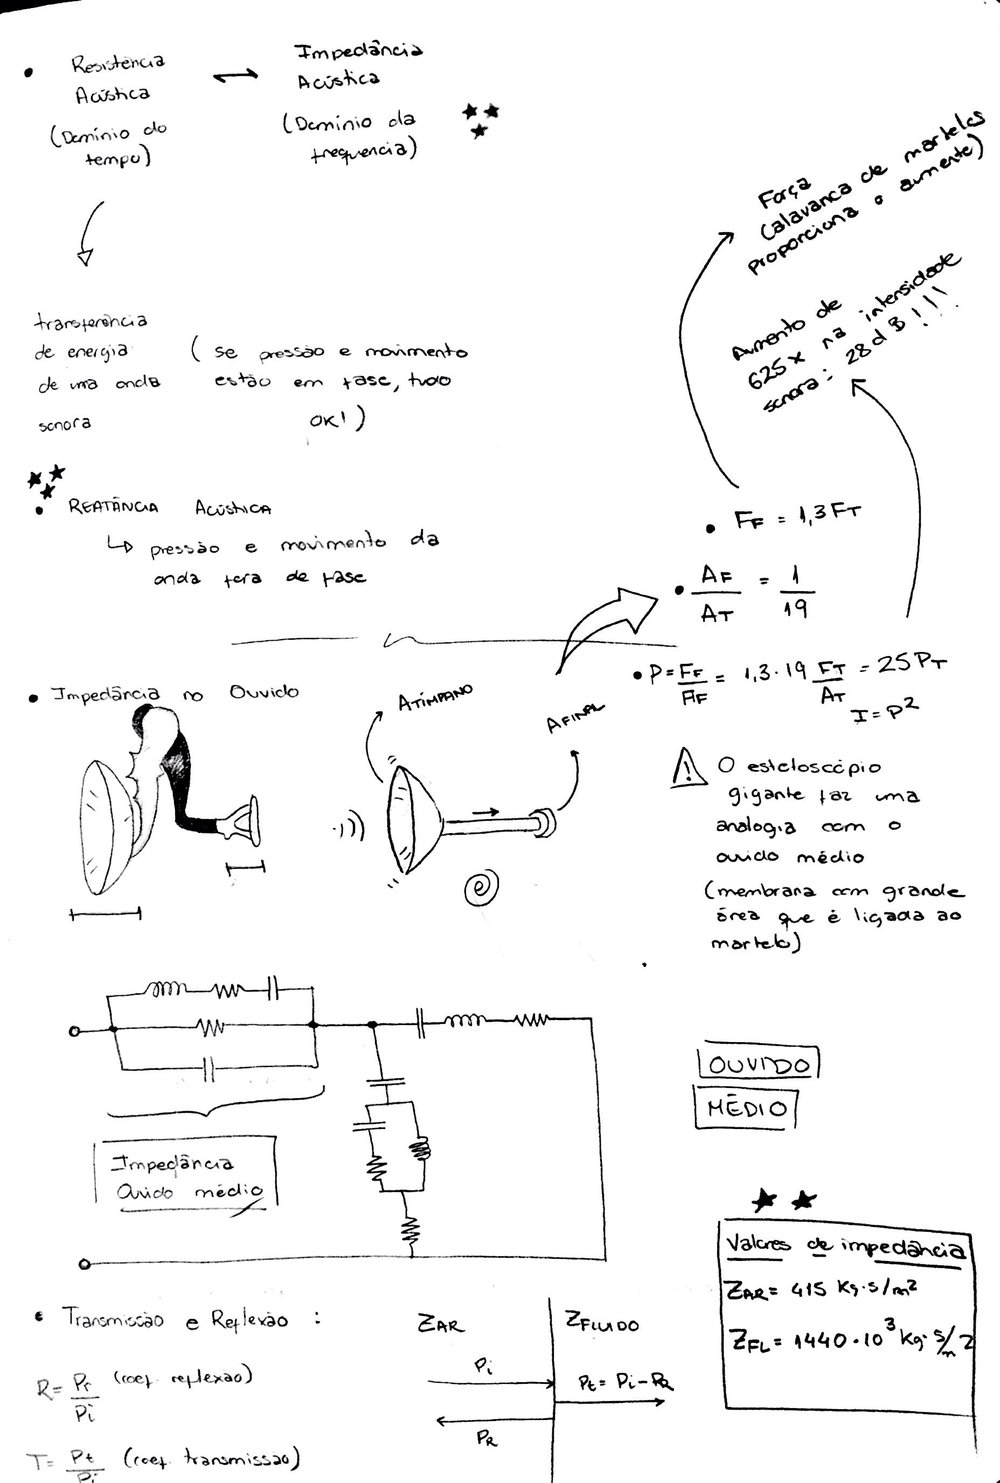 • Resistência ↔ Impedância
Acústica Acústica
(Domínio do (Domínio da
tempo) frequencia)
transferência
de energia
de uma onda
sonora
( se pressão e movimento
estão em fase, tudo
OK! )
• REATÂNCIA ACÚSTICA
↳ pressão e movimento da
onda fora de fase
Força
(alavanca de martelos
proporciona o aumento)
Aumento de
625x na intensidade
sonora: 28dB!!!
• FF = 1,3FT
• AF/AT = 1/19
• P = FF/AF = 1,3·19 FT/AT = 25PT
I = P²
• Impedância no Ouvido
ATÍMPANO
AFINAL
⚠ O estetoscópio
gigante faz uma
analogia com o
ouvido médio
(membrana com grande
área que é ligada ao
martelo)
Impedância
Ouvido médio
OUVIDO
MÉDIO
Valores de impedância
ZAR = 415 Kg·s/m²
ZFL = 1440·10³ Kg·s/m2
• Transmissão e Reflexão :
R = Pr/Pi (coef. reflexão)
T = Pt/Pi (coef. transmissão)
ZAR ZFLUIDO
Pi
Pt = Pi - PR
PR